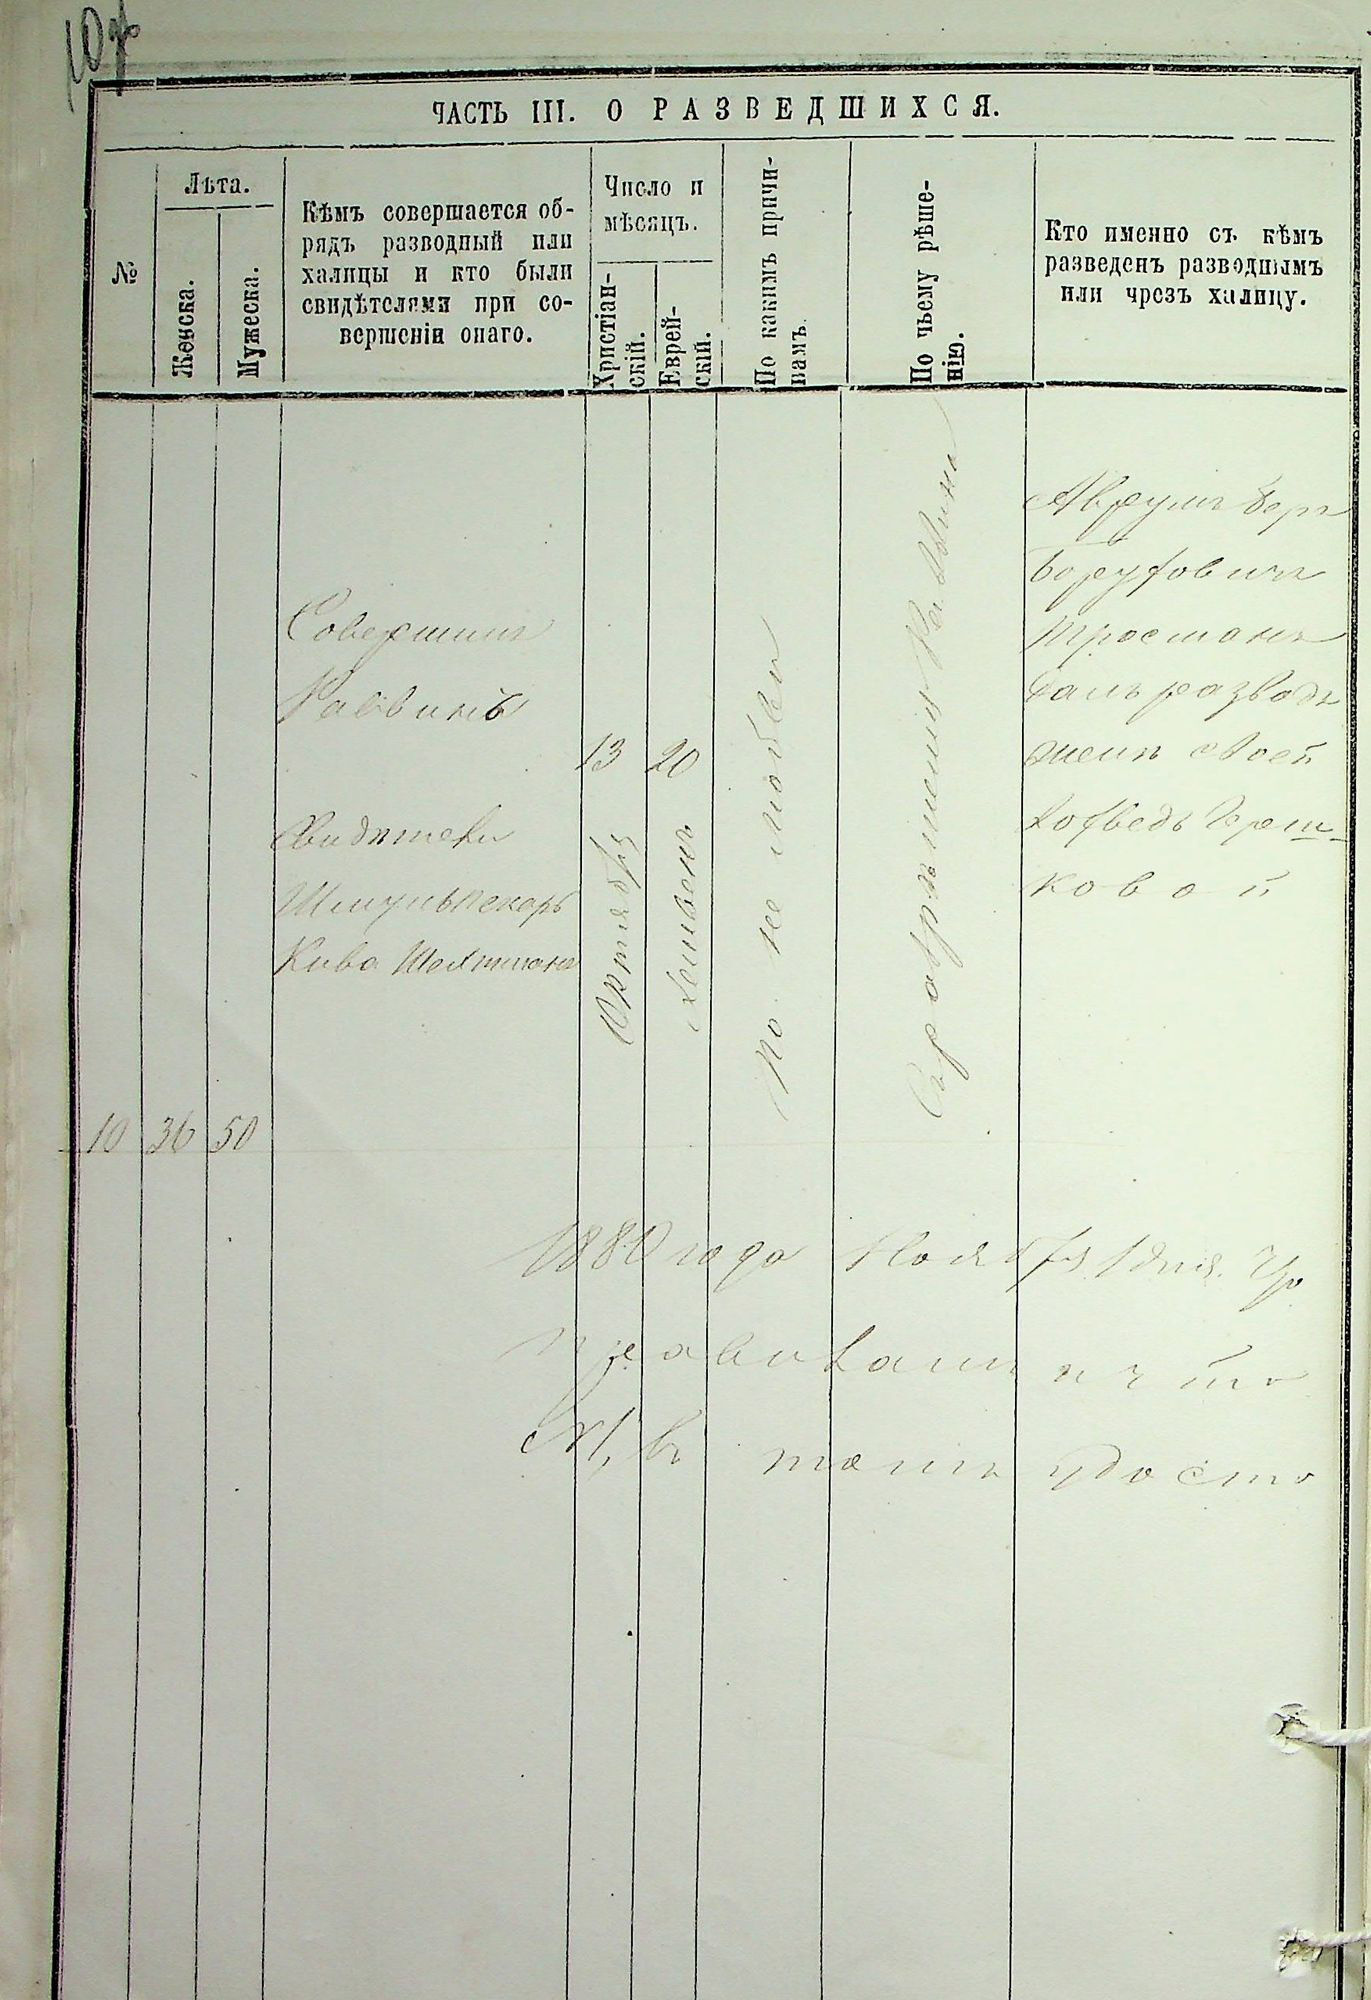 ЧАСТЬ III. О РАЗВЕДШИХСЯ.
№
Лѣта.
Женска.
Мужеска.
Кѣмъ совершается об-
рядъ разводный или
халицы и кто были
свидѣтелями при со-
вершеніи онаго.
Число и
мѣсяцъ.
Христіан-
скій.
Еврей-
скій.
По какимъ причи-
намъ.
По чьему рѣше-
нію.
Кто именно съ кѣмъ
разведенъ разводнымъ
или чрезъ халицу.
10
36
50
Совершилъ
Раввинъ
Свидѣтели
Шмуль Пекарь
Кива
13
Октября
20
Хешвенъ
По не любви
Съ разрѣшенія Раввина
Аврумъ Беръ
Борухович
Тросманъ
далъ разводъ
женѣ своей
Герш-
ковой
1880 года Ноября 1 дня. Гр
М, въ томъ удосто